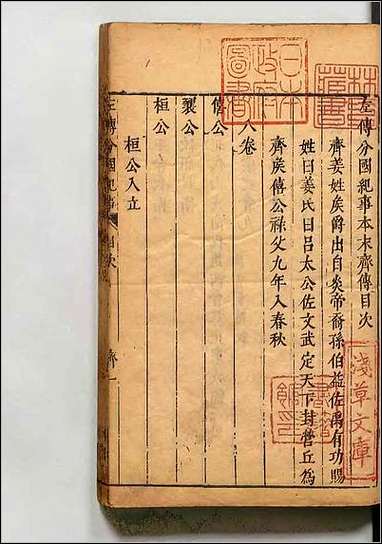 左傳分國紀事本末齊傳目次
齊姜姓矦爵出自炎帝裔孫伯益佐禹有功賜
姓曰姜氏曰呂太公佐文武定天下封營丘為
齊矦僖公祿父九年入春秋
八卷
僖公
襄公
桓公
桓公入立
左傳分國紀事 目次 齊一
林氏藏書
日本政府圖書
淺草文庫